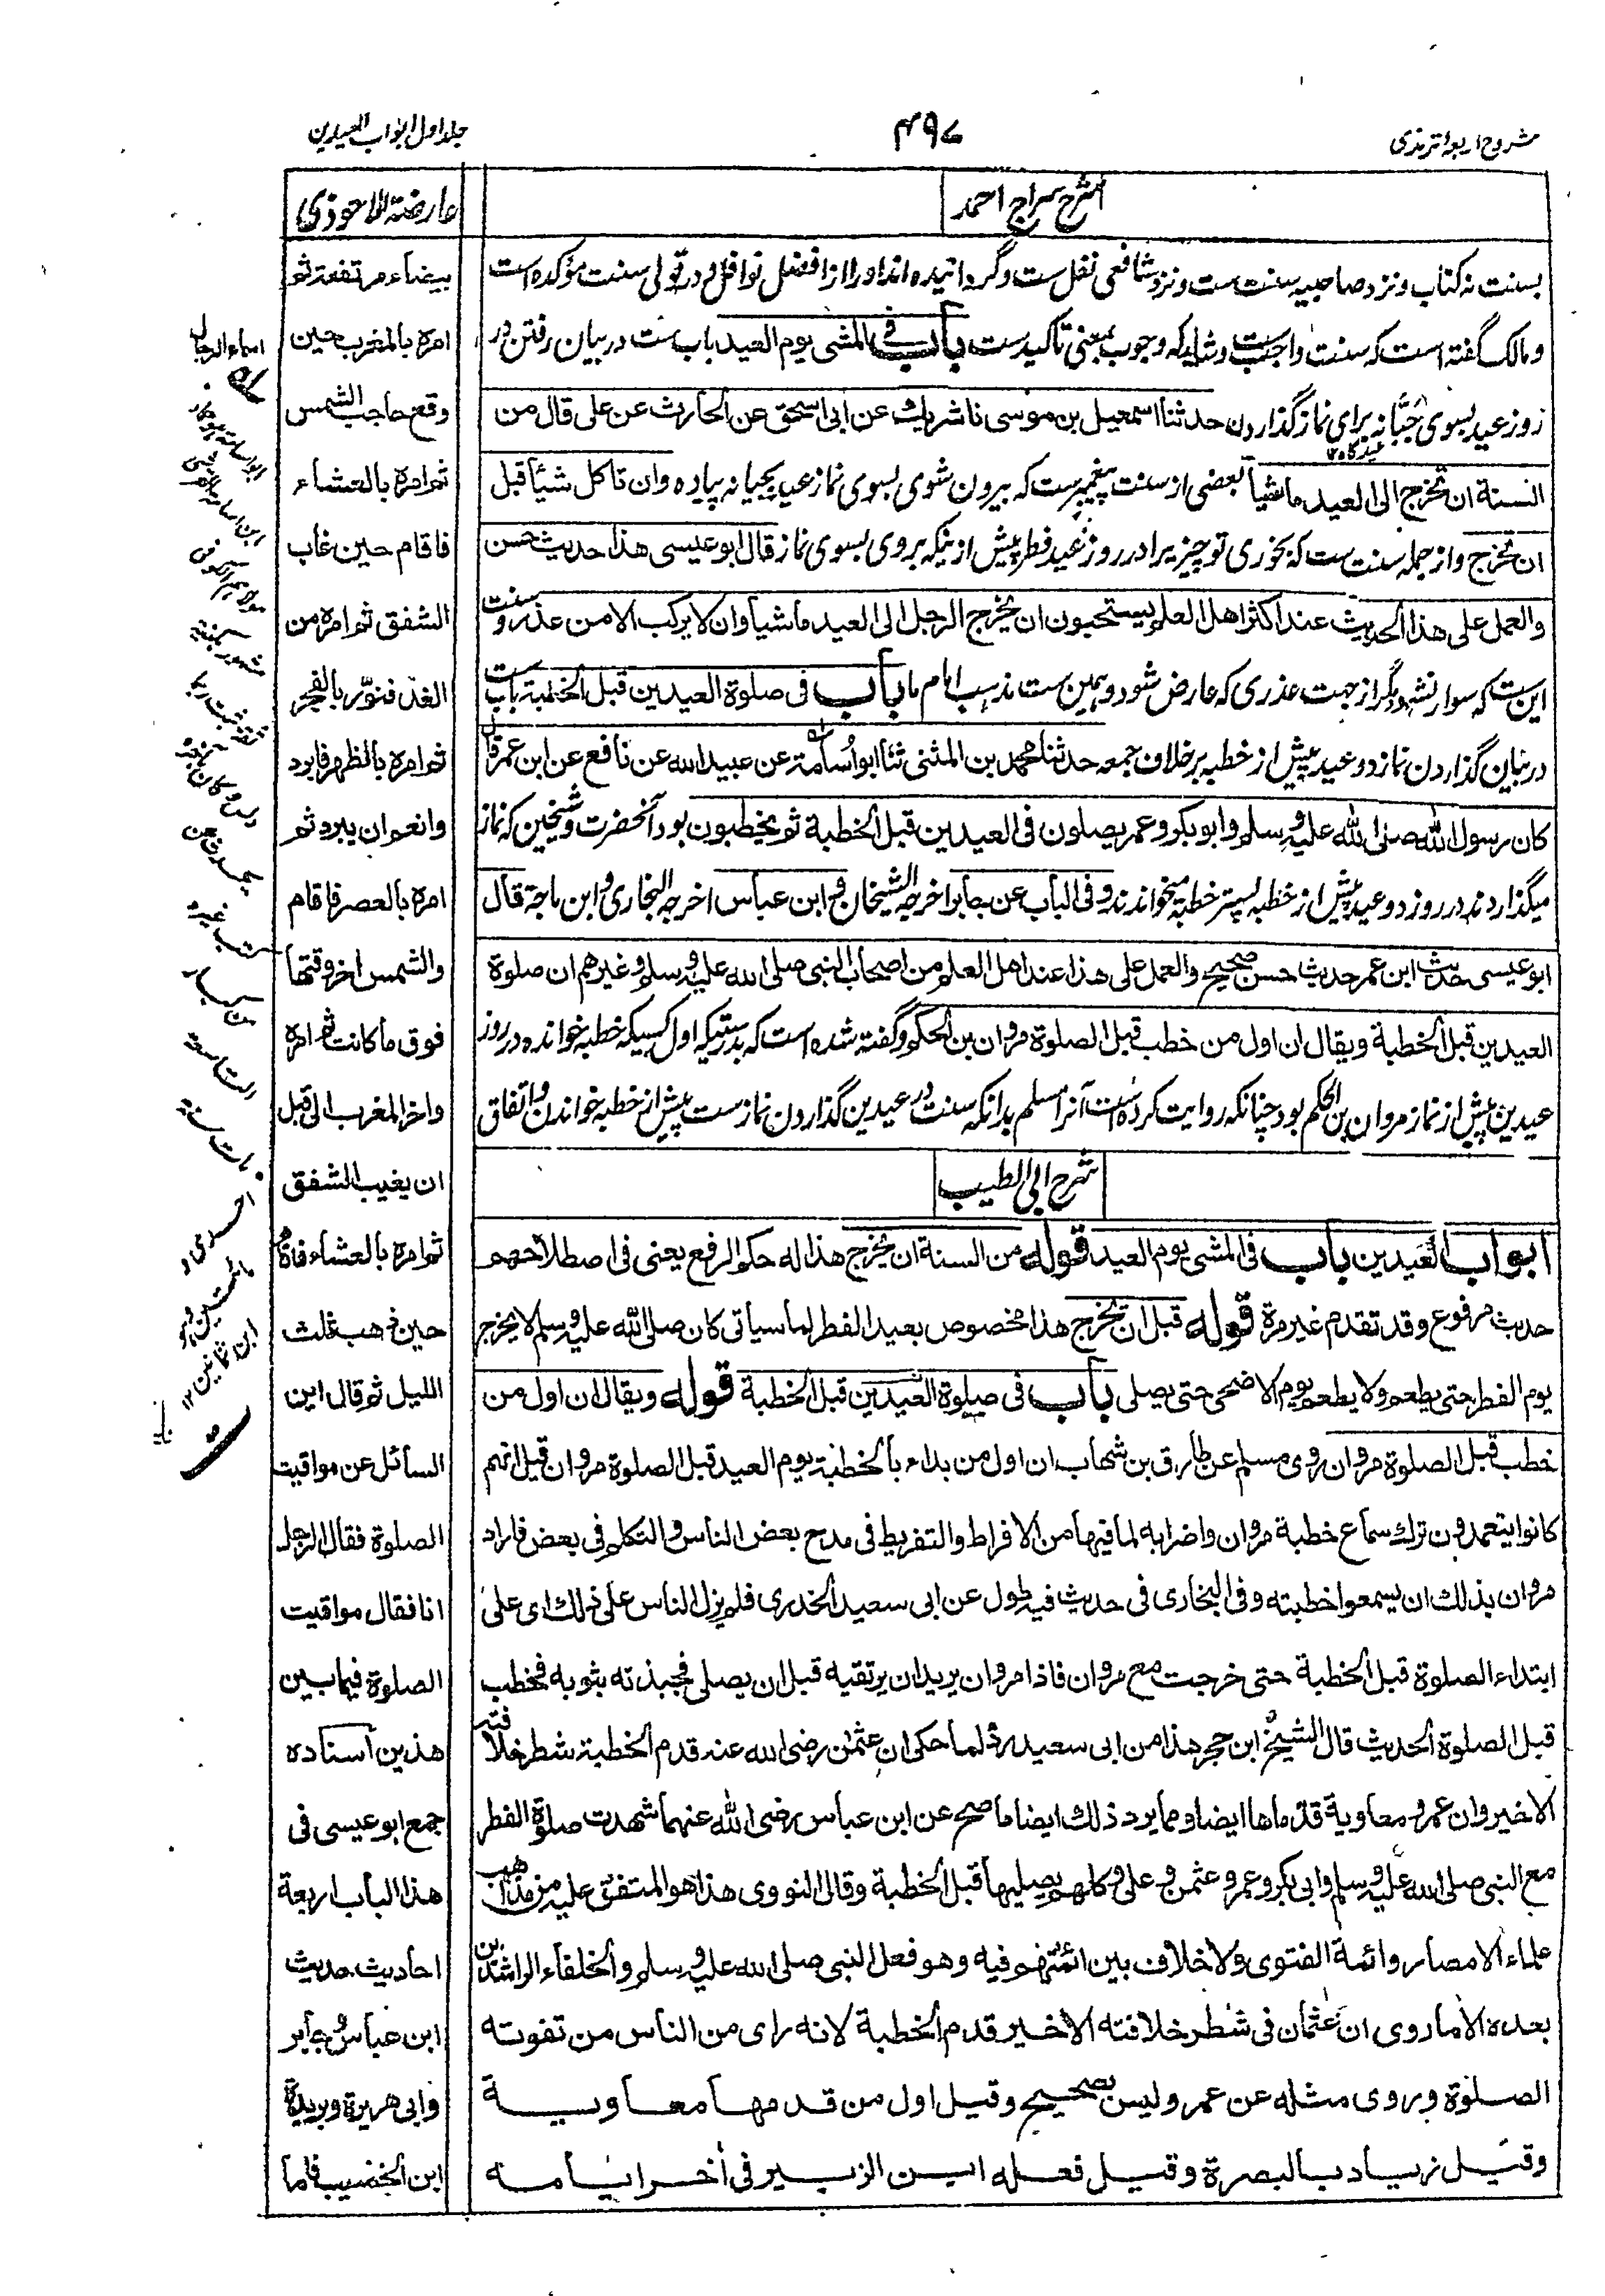 مشروح اربعه ترمذی
۴۹۷
جلد اول ابواب العیدین
شرح سراج احمد
بسنت نه کتاب و نزد صاحبیه سنت ست و نزد شافعی نفل ست و گردانیده اند او را از افضل نوافل و در قولی سنت مؤکده است
و مالک گفته است که سنت واجبست و شاید که وجوب بمعنی تاکیدست باب فی المشی یوم العید باب ست در بیان رفتن در
روز عید بسوی جبّانه برای نماز گذاردن حدثنا اسمعیل بن موسی نا شریك عن ابی اسحق عن الحارث عن علی قال من
عیدگاه ۱۲
السنة ان تخرج الی العید ماشیاً بعضی از سنت پیغمبرست که بیرون شوی بسوی نماز عید بجبانه پیاده وان تاکل شیئاً قبل
ان تخرج و از جمله سنت ست که بخوری تو چیزیرا در روز عید فطر پیش از ینکه بروی بسوی نماز قال ابو عیسی هذا حدیث حسن
والعمل علی هذا الحدیث عند اکثر اهل العلم یستحبون ان یخرج الرجل الی العید ماشیاً وان لا یرکب الا من عذر و سنت
این ست که سوار نشود مگر از جهت عذری که عارض شود و همین ست مذهب امام ما باب فی صلوة العیدین قبل الخطبة باب ست
در بیان گذاردن نماز دو عید پیش از خطبه بر خلاف جمعه حدثنا محمد بن المثنی ثنا ابو اُسامة عن عبید الله عن نافع عن ابن عمر قال
کان رسول الله صلی الله علیه وسلم و ابو بکر و عمر یصلون فی العیدین قبل الخطبة ثم یخطبون بود آنحضرت و شیخین که نماز
میگذاردند در روز دو عید پیش از خطبه پستر خطبه میخواندند و فی الباب عن جابر اخرجه الشیخان و ابن عباس اخرجه البخاری و ابن ماجة قال
ابو عیسی حدیث ابن عمر حدیث حسن صحیح والعمل علی هذا عند اهل العلم من اصحاب النبی صلی الله علیه وسلم و غیرهم ان صلوة
العیدین قبل الخطبة ویقال ان اول من خطب قبل الصلوة مروان بن الحکم و گفته شده است که بدرستیکه اول کسیکه خطبه خوانده در روز
عیدین پیش از نماز مروان بن الحکم بود چنانکه روایت کرده ست آنرا مسلم بدانکه سنت در عیدین گذاردن نمازست پیش از خطبه خواندن و اتفاق
شرح ابی الطیب
ابواب العیدین باب فی المشی یوم العید قوله من السنة ان یخرج هذا له حکم الرفع یعنی فی اصطلاحهم
حدیث مرفوع وقد تقدم غیر مرة قوله قبل ان تخرج هذا مخصوص بعید الفطر لما سیاتی کان صلی الله علیه وسلم لا یخرج
یوم الفطر حتی یطعم ولا یطعم یوم الاضحی حتی یصلی باب فی صلوة العیدین قبل الخطبة قوله ویقال ان اول من
خطب قبل الصلوة مروان روی مسلم عن طارق بن شهاب ان اول من بداء بالخطبة یوم العید قبل الصلوة مروان قیل انهم
کانوا یتعمدون ترك سماع خطبة مروان واضرابه لما فیها من الافراط والتفریط فی مدح بعض الناس والتکلم فی بعض فاراد
مروان بذلك ان یسمعوا خطبته وفی البخاری فی حدیث فیه طول عن ابی سعید الخدری فلم یزل الناس علی ذلك ای علی
ابتداء الصلوة قبل الخطبة حتی خرجت مع مروان فاذا مروان یرید ان یرتقیه قبل ان یصلی فجبذته بثوبه فخطب
قبل الصلوة الحدیث قال الشیخ ابن حجر هذا من ابی سعید ردّ لما حکی ان عثمٰن رضی الله عنه قدم الخطبة شطر خلافته
الاخیر وان عمر و معاویة قدّماها ایضا ومما یرد ذلك ایضا ما صح عن ابن عباس رضی الله عنهما شهدت صلوة الفطر
مع النبی صلی الله علیه وسلم وابی بکر وعمر وعثمن وعلی وکلهم یصلیها قبل الخطبة وقال النووی هذا هو المتفق علیه من مذاهب
علماء الامصار وائمة الفتوی ولا خلاف بین ائمتهم فیه وهو فعل النبی صلی الله علیه وسلم والخلفاء الراشدین
بعده الا ما روی ان عثمان فی شطر خلافته الاخیر قدم الخطبة لانه رای من الناس من تفوته
الصلوة وروی مثله عن عمر ولیس بصحیح وقیل اول من قدمها معاویة
وقیل زیاد بالبصرة وقیل فعله ابن الزبیر فی اخر ایامه
عارضة الاحوذی
بیضاء مرتفعة ثم
امره بالمغرب حین
وقع حاجب الشمس
ثم امره بالعشاء
فاقام حین غاب
الشفق ثم امره من
الغد فنوّر بالفجر
ثم امره بالظهر فابرد
وانعم ان یبرد ثم
امره بالعصر فاقام
والشمس اخر وقتها
فوق ما کانت ثم امره
واخر المغرب الی قبل
ان یغیب الشفق
ثم امره بالعشاء فاقام
حین ذهب ثلث
اللیل ثم قال این
السائل عن مواقیت
الصلوة فقال الرجل
انا فقال مواقیت
الصلوة فیما بین
هذین اسناده
جمع ابو عیسی فی
هذا الباب اربعة
احادیث حدیث
ابن عباس و جابر
وابی هریرة وبریدة
ابن الخصیب فاما
اسماء الرجال